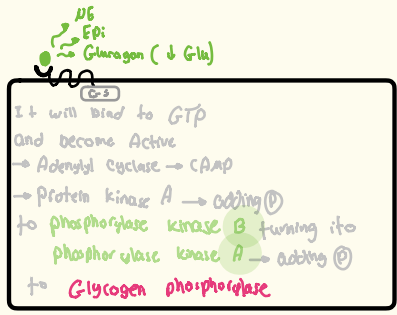 NE
Epi
Glucagon ( ↓ Glu)
Gs
It will bind to GTP
and become Active
→ Adenylyl cyclase → CAMP
→ Protein kinase A → adding P
to phosphorylase kinase B turning ito
phosphorylase kinase A → adding P
to Glycogen phosphorylase